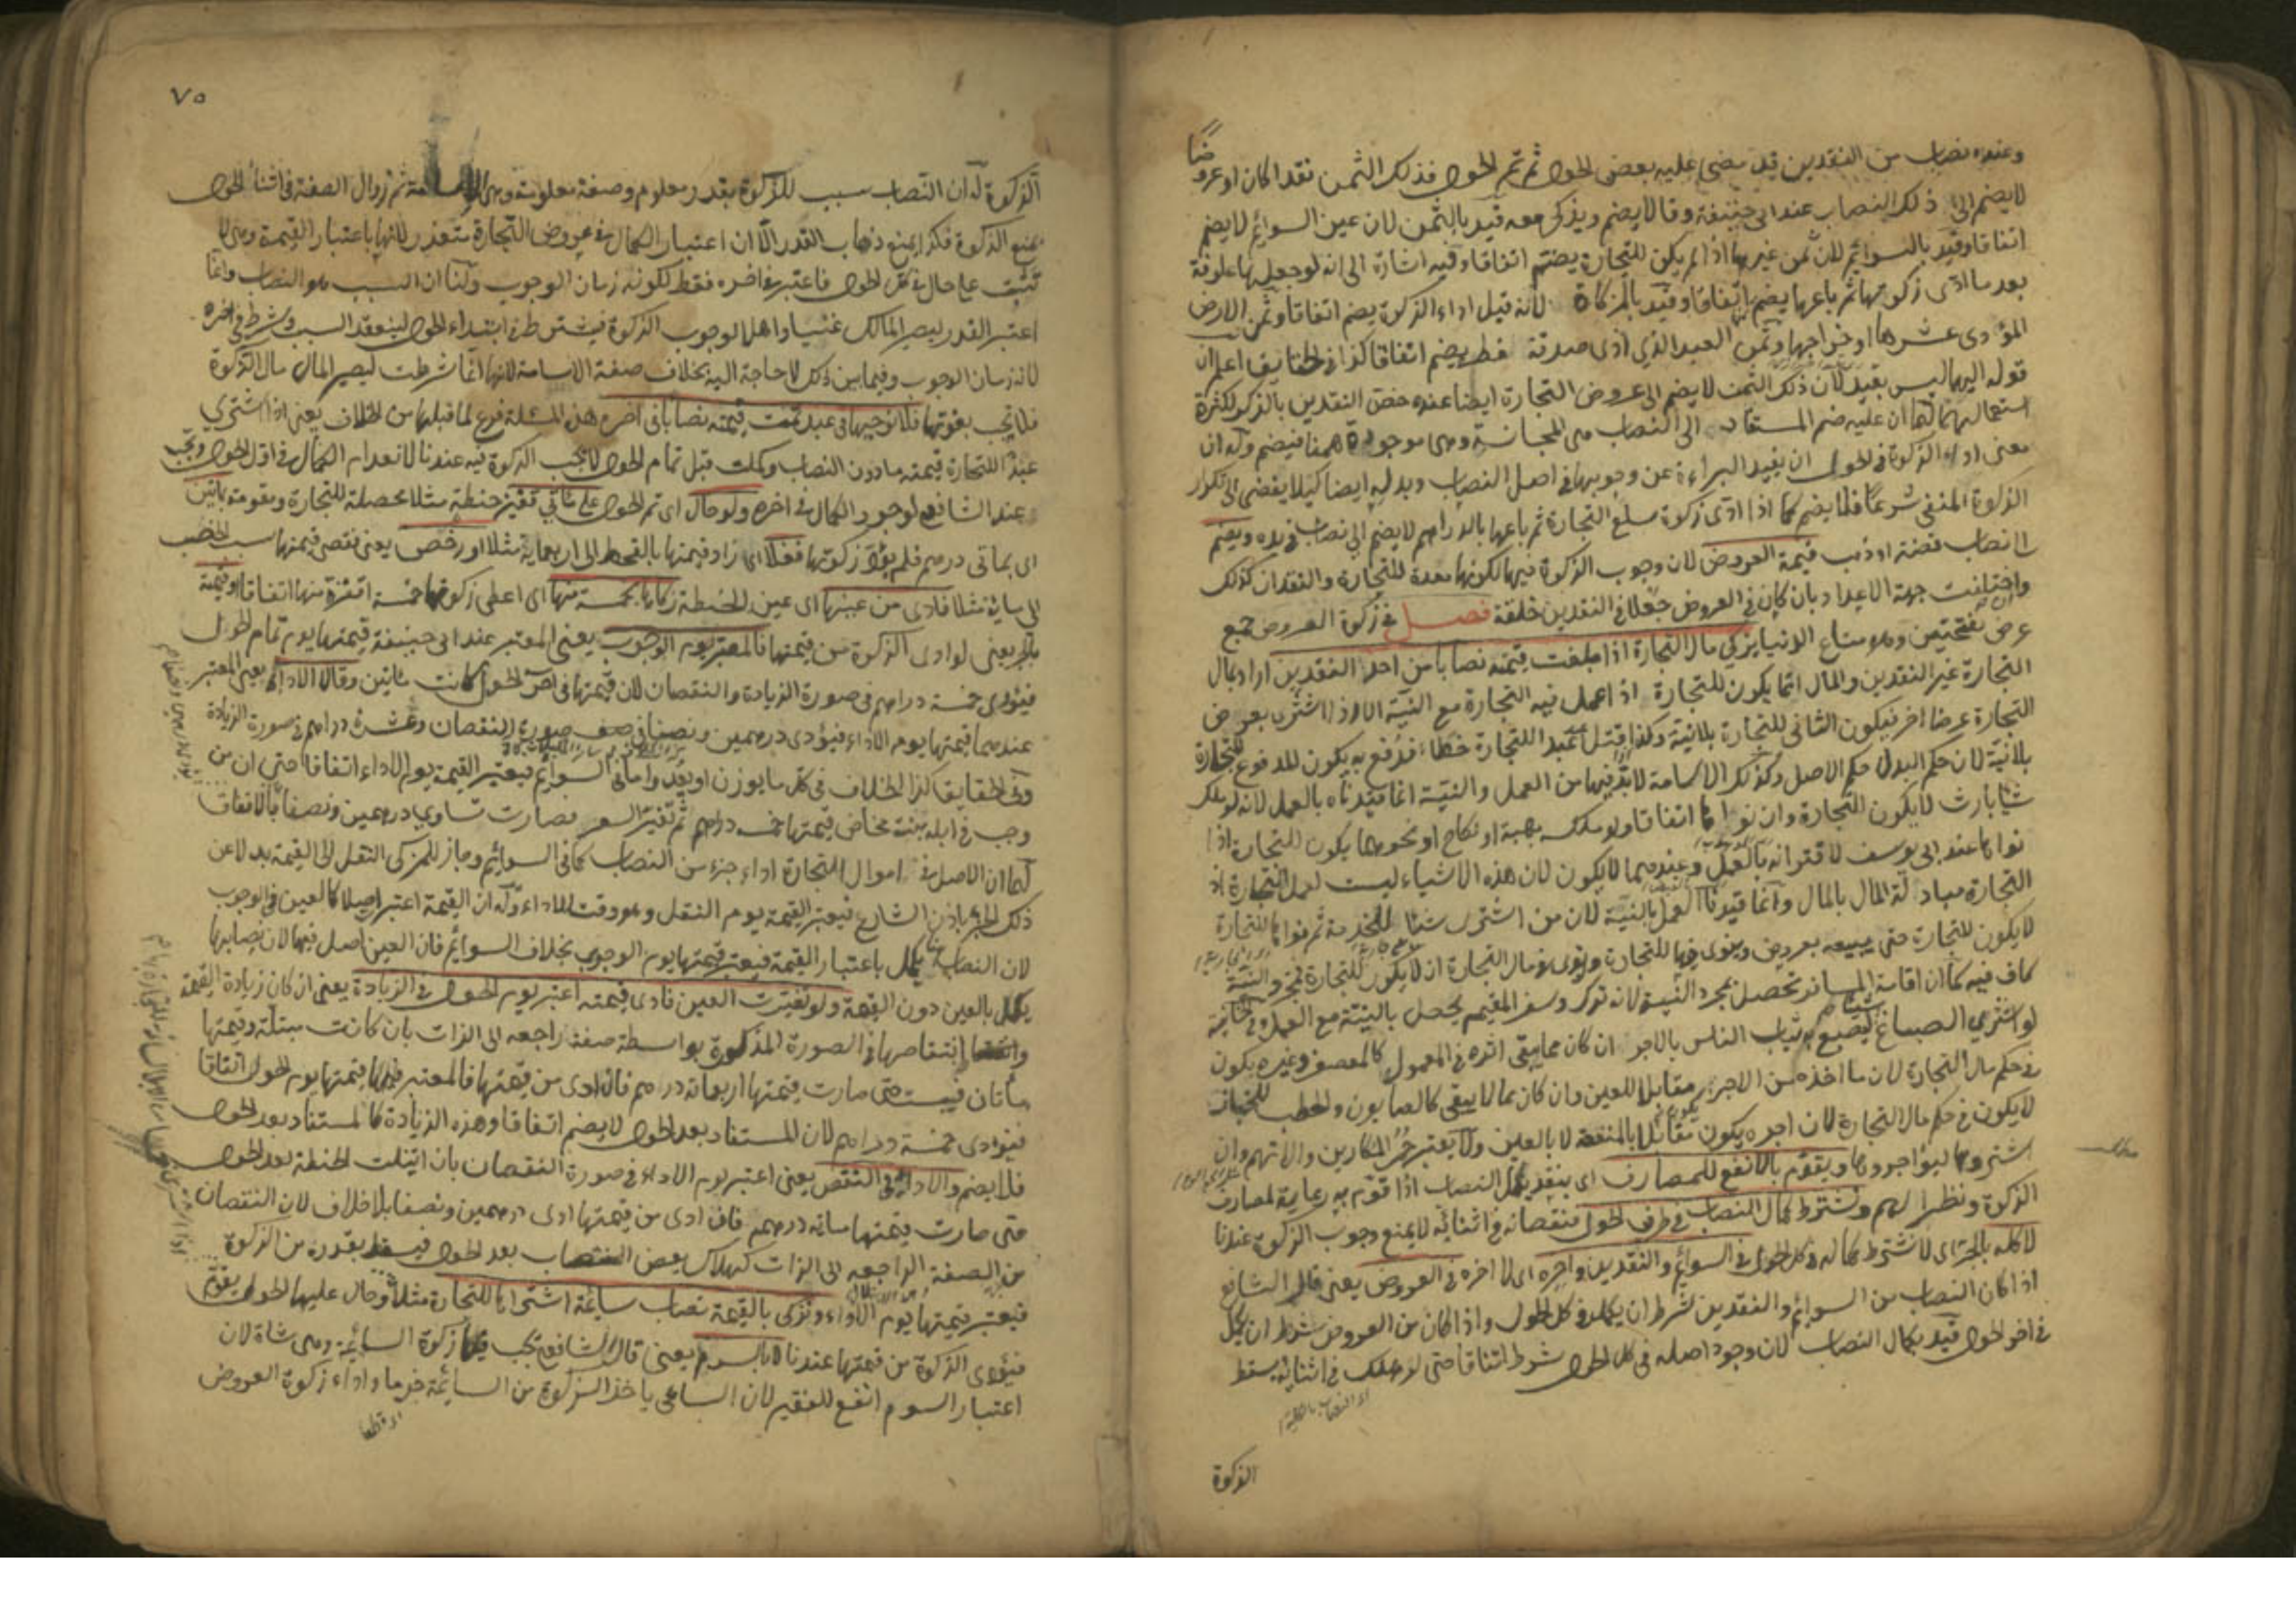 وعنده نصاب من النقدين قد مضى عليه بعض الحول ثم تم الحول فذلك الثمن نقدا كان او عروضا
لا يضم الى ذلك النصاب عند ابى حنيفة وقالا يضم ويزكى معه قيد بالثمن لان عين السوائم لا يضم
اتفاقا وقيد بالسوائم لان ثمن غيرها اذا لم يكن للتجارة يضم اتفاقا وفيه اشارة الى انه لو جعلها علوفة
بعد ما ادى زكوتها ثم باعها يضم اتفاقا وقيد بالمزكاة لانه قبل اداء الزكوة يضم اتفاقا وثمن الارض
المؤدى عشرها او خراجها وثمن العبد الذي ادى صدقة فطره يضم اتفاقا كذا في الحقايق اعلم ان
قوله اليهما ليس بقيد لان ذلك الثمن لا يضم الى عروض التجارة ايضا عنده خص النقدين بالذكر لكثرة
استعمالهما لهما ان علة ضم المستفاد الى النصاب هى المجانسة وهى موجودة ههنا فيضم وله ان
معنى اداء الزكوة في الحول ان يفيد البراءة عن وجوبها في اصل النصاب وبدله ايضا كيلا يفضى الى تكرار
الزكوة المنفى شرعا فلا يضم كما اذا ادى زكوة سلع التجارة ثم باعها بالدراهم لا يضم الى نصاب في يده ويضم
الى نصاب فضة او ذهب قيمة العروض لان وجوب الزكوة فيها لكونها معدة للتجارة والنقدان كذلك
واختلفت جهة الاعداد بان كان في العروض جعلا وفي النقدين خلقة فصل في زكوة العروض جمع
عرض بفتحتين وهو متاع الدنيا يزكي مال التجارة اذا بلغت قيمته نصابا من احد النقدين اراد بمال
التجارة غير النقدين والمال انما يكون للتجارة اذا عمل فيه التجارة مع النية الا اذا اشترى بعروض
التجارة عرضا اخر فيكون الثانى للتجارة بلا نية وكذا قتل عبد التجارة خطاء فدفع به يكون المدفوع للتجارة
بلا نية لان حكم البدل حكم الاصل وكذلك الاسامة لا بد فيها من العمل والنية انما قيدناه بالعمل لانه لو ملك
شيا بارث لا يكون للتجارة وان نواها اتفاقا ولو ملك بهبة او نكاح او نحوهما يكون للتجارة اذا
نواها عند ابى يوسف لاقترانه بالعمل وعندهما لا يكون لان هذه الاشياء ليست لعمل التجارة اذ
التجارة مبادلة المال بالمال وانما قيدنا العمل بالنية لان من اشترى شيئا للخدمة ثم نواها للتجارة
لا يكون للتجارة حتى يبيعه بعروض وينوى فيها للتجارة ولو نوى في مال التجارة ان لا يكون للتجارة فمجرد النية
كاف فيه كما ان اقامة المسافر تحصل بمجرد النية لانه ترك وسفر المقيم يحصل بالنية مع العمل وفي الخانية
لو اشترى الصباغ شيئا ليصبغ به ثياب الناس بالاجر ان كان مما يبقى اثره في المعمول كالعصفر وغيره يكون
في حكم مال التجارة لان ما اخذه من الاجر مقابل للعين وان كان مما لا يبقى كالصابون والحطب للخباز
لا يكون في حكم مال التجارة لان اجره يكون مقابلا بالمنفعة لا بالعين ولا يعتبر حمر المكارين والاتهم وان
اشتروها ليؤاجروها ويقوم بالانفع للمصارف اى بنقد يكمل النصاب اذا قوم به رعاية لمصارف
الزكوة ونظرا لهم ونشترط كمال النصاب في طرفى الحول فنقصانه في اثنائه لا يمنع وجوب الزكوة عندنا
لا كله بالجر اى لا نشترط كماله في كل الحول في السوائم والنقدين واخره اى لا اخره في العروض يعنى قال الشافعى
اذا كان النصاب من السوائم والنقدين شرط ان يكمل في كل الحول واذا كان من العروض شرط ان يكمل
في اخر الحول قيد بكمال النصاب لان وجود اصله في كل الحول شرط اتفاقا حتى لو هلك في اثنائه يسقط
الزكوة
٧٥
الزكوة له ان النصاب سبب للزكوة بقدر معلوم وصفة معلومة وهى الاسامة ثم زوال الصفة في اثناء الحول
يمنع الزكوة فكذا يمنع ذهاب القدر الا ان اعتبار الكمال في عروض التجارة متعذر لانها باعتبار القيمة وهى لا
تثبت على حال في كل الحول فاعتبر في اخره فقط لكونه زمان الوجوب ولنا ان السبب هو النصاب وانما
اعتبر القدر ليصير المالك غنيا واهلا لوجوب الزكوة فيشترط في ابتداء الحول لينعقد السبب وشرط في اخره
لانه زمان الوجوب وفيما بين ذلك لا حاجة اليه بخلاف صفة الاسامة لانها انما شرطت ليصير المال مال الزكوة
فلا يجب بفوتها فلا نوجبها في عبد تمت قيمته نصابا في اخره هذه المسئلة فرع لما قبلها من الخلاف يعنى اذا اشترى
عبدا للتجارة قيمته ما دون النصاب وكملت قبل تمام الحول لا يجب الزكوة فيه عندنا لانعدام الكمال في اول الحول ويجب
عند الشافعى لوجود الكمال في اخره ولو حال اى تم الحول على مائتي قفيز حنطة مثلا محصلة للتجارة ومقومة بمائتين
اى بمائتى درهم فلم يؤد زكوتها فغلا اى زاد قيمتها بالقحط الى اربعماية مثلا او رخص يعنى نقص قيمتها بسبب الخصب
الى ماية مثلا فادى من عينها اى عين الحنطة زكاها بخمسة منها اى اعطى زكوتها خمسة اقفزة منها اتفاقا او قيمة
بالجر يعنى لو ادى الزكوة من قيمتها فالمعتبر يوم الوجوب يعنى المعتبر عند ابى حنيفة قيمتها يوم تمام الحول
فيؤدى خمسة دراهم في صورة الزيادة والنقصان لان قيمتها في اخر الحول كانت مائتين وقالا الاداء يعنى المعتبر
عندهما قيمتها يوم الاداء فيؤدى درهمين ونصفا في صورة النقصان وعشرة دراهم في صورة الزيادة
وفي الحقايق كذا الخلاف في كل ما يوزن او يعد واما في السوائم فيعتبر القيمة يوم الاداء اتفاقا حتى ان من
وجب في ابله بنت مخاض قيمتها خمسة دراهم ثم تغير السعر فصارت تساوي درهمين ونصفا بالاتفاق
لهما ان الاصل في اموال التجارة اداء جزء من النصاب كما في السوائم وجاز للمزكى النقل الى القيمة بدلا عن
ذلك الجزء باذن الشارع فيعتبر القيمة يوم النقل وهو وقت الاداء وله ان القيمة اعتبر اصلا كالعين في الوجوب
لان النصاب هنا يكمل باعتبار القيمة فيعتبر قيمتها يوم الوجوب بخلاف السوائم فان العين اصل فيها لان نصابها
يكمل بالعين دون القيمة ولو تغيرت العين فادى قيمته اعتبر يوم الحول في الزيادة يعنى ان كان زيادة القيمة
وانتقاصها في الصورة المذكورة بواسطة صفة راجعه الى الذات بان كانت مبتلة وقيمتها
مأتان فيبست حتى صارت قيمتها اربعمائة درهم فان ادى من قيمتها فالمعتبر فيها قيمتها يوم الحول اتفاقا
فيؤدى خمسة دراهم لان المستفاد بعد الحول لا يضم اتفاقا وهذه الزيادة كالمستفاد بعد الحول
فلا يضم والاداء في النقص يعنى اعتبر يوم الاداء في صورة النقصان بان ابتلت الحنطة بعد الحول
حتى صارت قيمتها مائة درهم فان ادى من قيمتها ادى درهمين ونصفا بلا خلاف لان النقصان
من الصفة الراجعه الى الذات كهلاك بعض النصاب بعد الحول فيسقط بقدره من الزكوة
فيعتبر قيمتها يوم الاداء ونزكى بالقيمة نصاب سائمة اشتراها للتجارة مثلا وحال عليها الحول يقوم
فيؤدى الزكوة من قيمتها عندنا لا بالسوم يعنى قال الشافعى تجب فيها زكوة السائمة وهى شاة لان
اعتبار السوم انفع للفقير لان الساعى ياخذ الزكوة من السائمة جزما واداء زكوة العروض